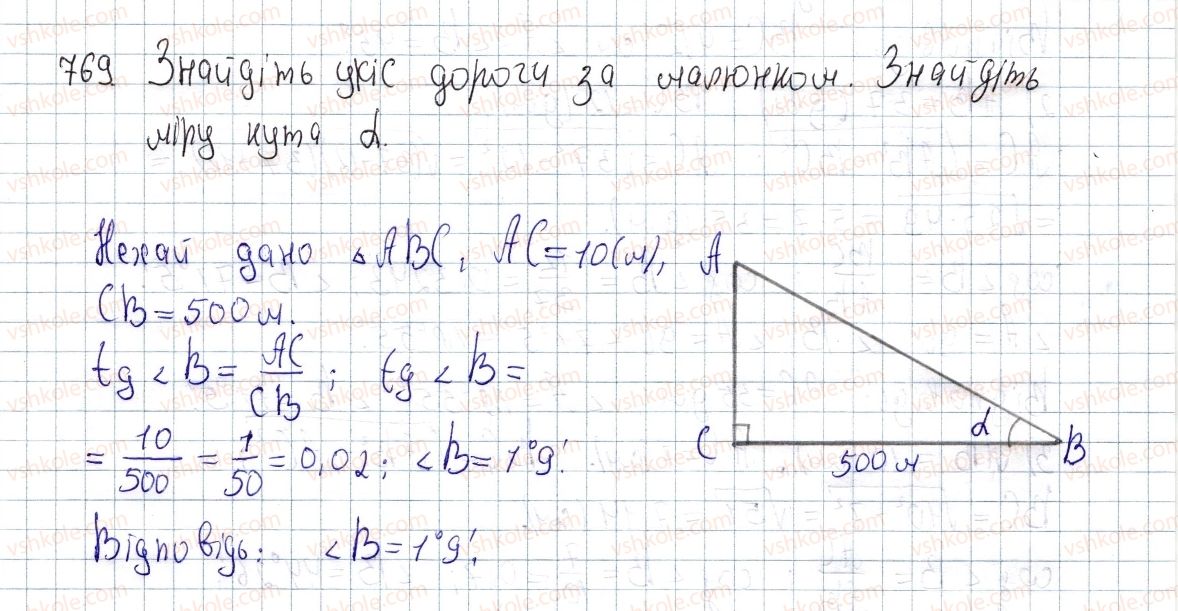 769 Знайдіть укіс дороги за малюнком. Знайдіть
міру кута α.
Нехай дано △ABC, AC=10(м),
CB=500м.
tg<B = AC/CB; tg<B =
= 10/500 = 1/50 = 0,02; <B=1°9'.
Відповідь: <B=1°9'.
A
C
α
B
500м
vshkole.com